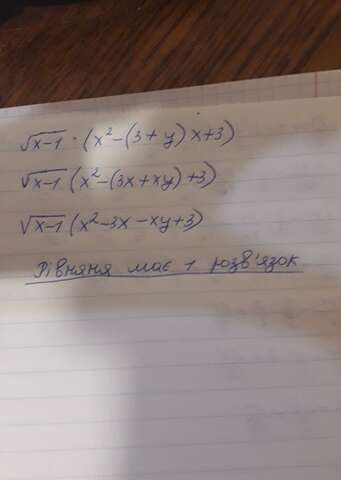 √x-1 · (x²-(3+y)x+3)
√x-1 (x²-(3x+xy)+3)
√x-1 (x²-3x-xy+3)
Рівняня має 1 розв'язок